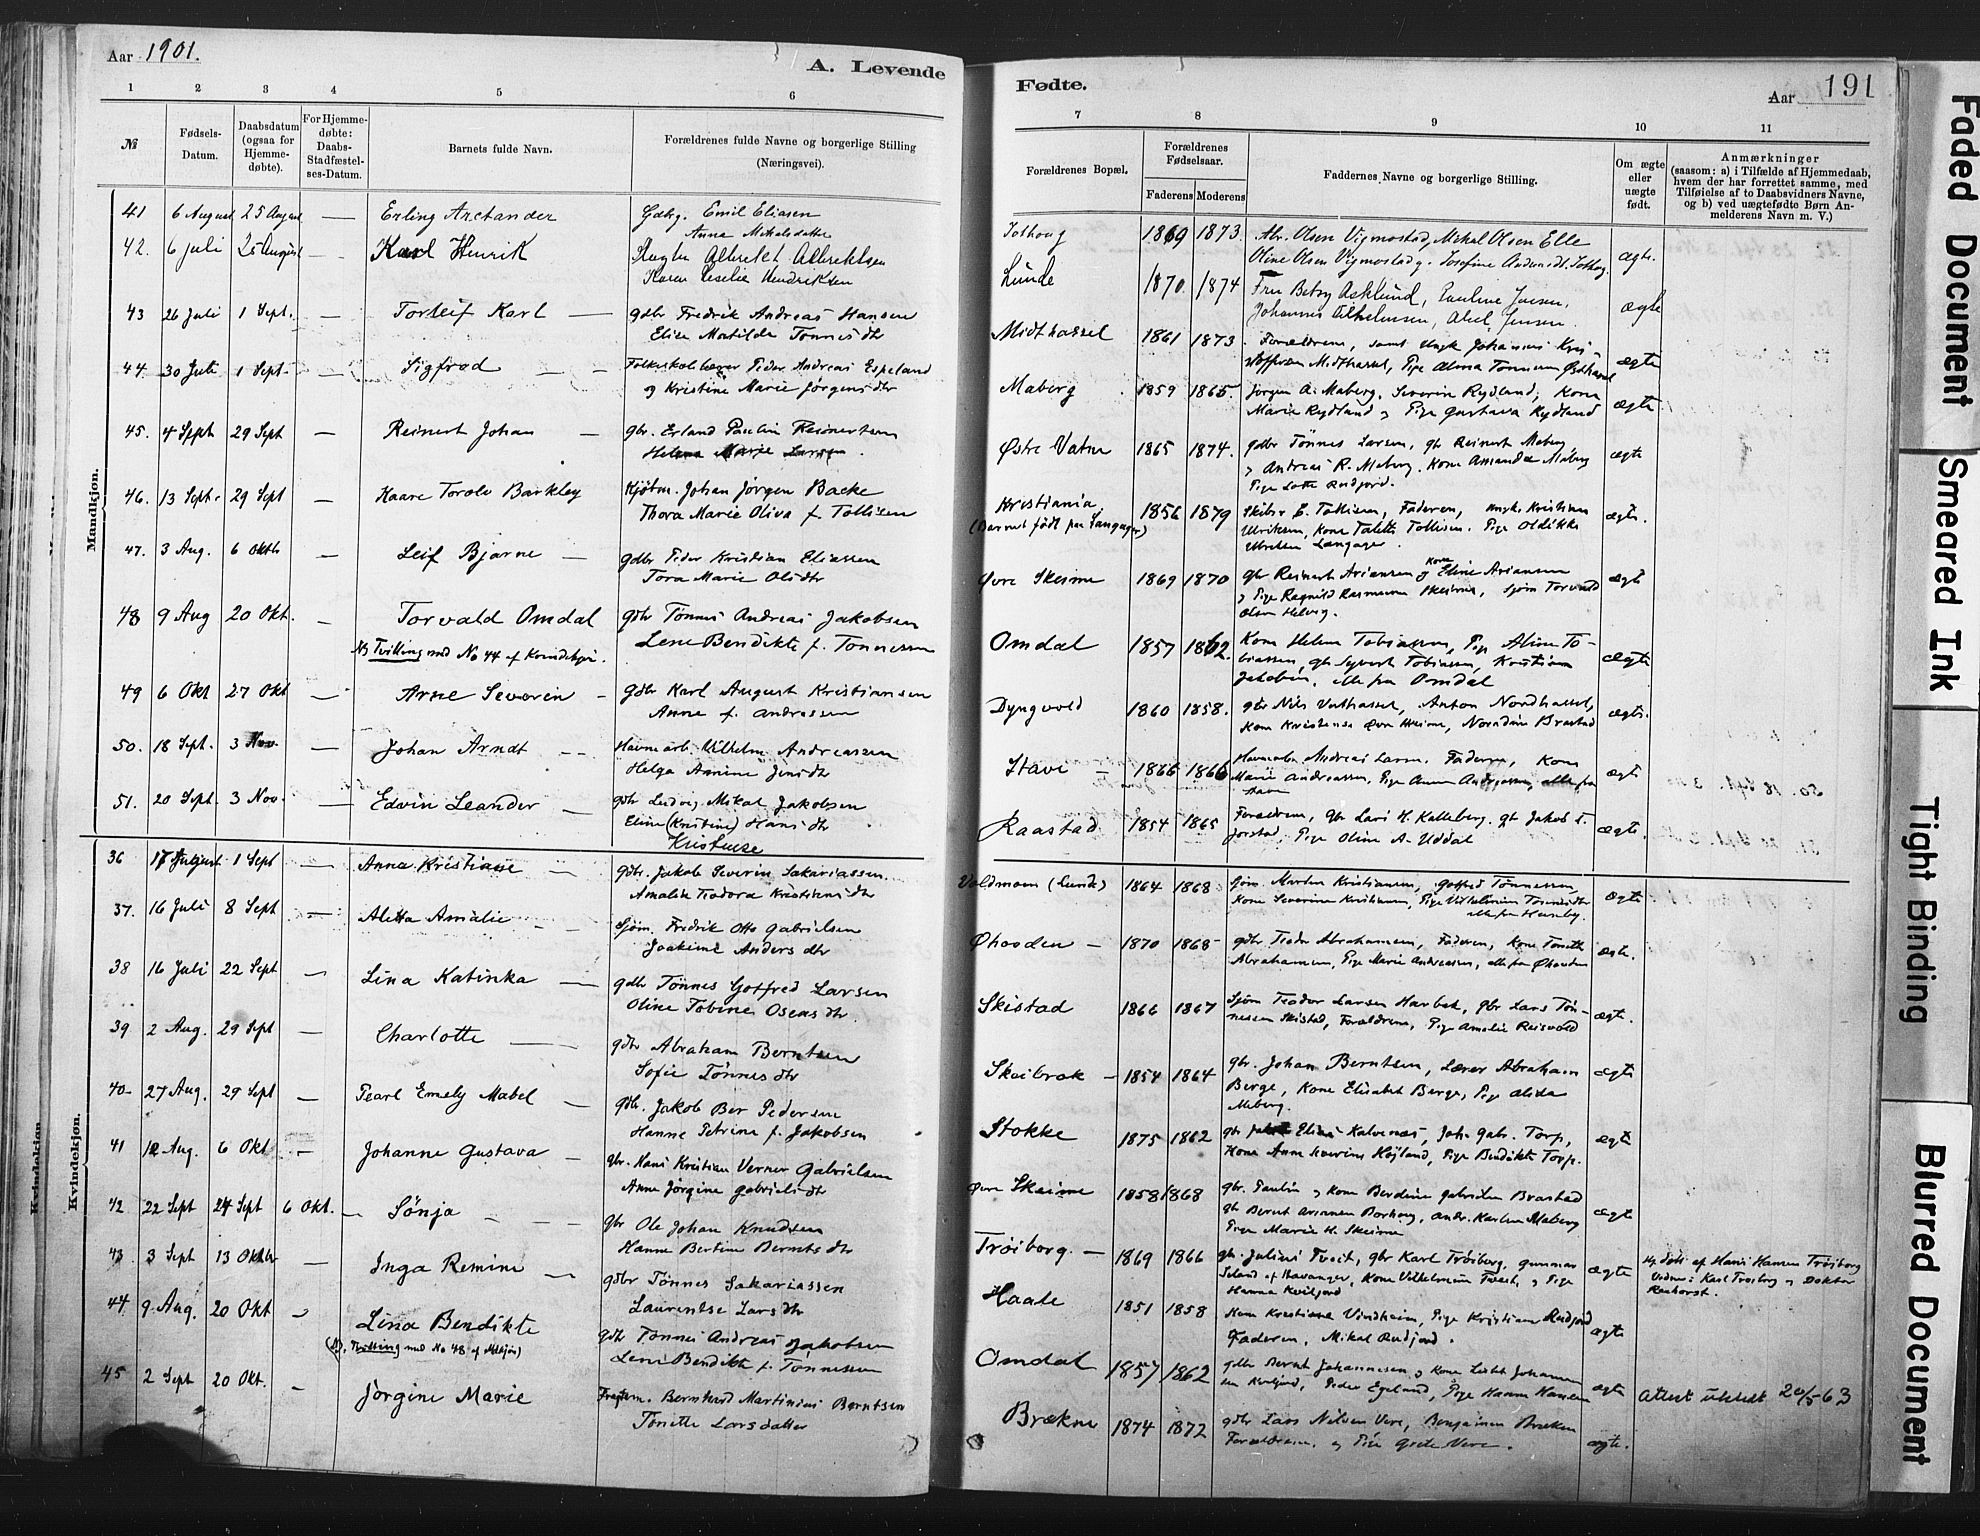 Aar 1901.
A. Levende
1 2 3 4 5 6
№
Fødsels-Datum.
Daabsdatum (ogsaa for Hjemme-døbte).
For Hjemme-døbte: Daabs-Stadfæstel-ses-Datum.
Barnets fulde Navn.
Forældrenes fulde Navne og borgerlige Stilling
(Næringsvei).
Mandkjøn.
41 6 August 25 August — Erling Arctander Gdbg. Emil Eliasen
Anna Mikalsdatter
42. 6 juli 25 August — Karl Henrik Albrekt Albrektsen
Karen Cecelie Hendriksen
43 26 Juli 1 Sept. — Torleif Karl — gdbr Fredrik Andreas Hansen
Elise Matilde Tønnesdtr
44. 30 Juli 1 Sept. — Sigfrod — Folkeskolelærer Peder Andreas Espeland
og Kristine Marie Jørgensdtr
45. 4 Sept 29 Sept — Reinert Johan — gbr. Erland Paulin Reinertsen
Helene Marie Larsen
46. 13 Sept. 29 Sept — Kaare Torolv Barkley Kjøbm. Johan Jørgen Backe
Thora Marie Oliva f. Tollisen
47. 3 Aug. 6 Oktb — Leif Bjarne — gdbr Peder Kristian Eliassen
Tora Marie Olsdtr
48 9 Aug 20 Okt. — Torvald Omdal gdbr Tønnes Andreas Jakobsen
NB Tvilling med No 44 af Kvindekjøn. Lene Bendikte f. Tønnessen
49 6 Okt 27 Okt — Arne Severin — gdbr Karl August Kristiansen
Anne f. Andreassen
50. 18 Sept. 3 Nov. — Johan Arndt — Havnearb. Vilhelm Andreassen
Helga Amine Jensdtr
51. 20 Sept. 3 Nov. — Edvin Leander — gdbr Ludvig Mikal Jakobsen
Eline (Kristine) Hansdtr
Kvindekjøn
Kvindekjøn.
36 17 August 1 Sept — Anna Kristiane — gdbr. Jakob Severin Sakariassen
Amalie Teodora Kristiansdtr
37. 16 Juli 8 Sept — Aletta Amalie — Sjøm. Fredrik Otto Gabrielsen
Joakime Andersdtr
38 16 Juli 22 Sept — Lina Katinka — gdbr Tønnes Gotfred Larsen
Oline Tobine Osensdtr
39 2 Aug. 29 Sept — Charlotte — gdbr Abraham Berntsen
Sofie Tønnesdtr
40 27 Aug. 29 Sept — Pearl Emely Mabel — gdbr. Jakob Ber Pedersen
Hanne Petrine f. Jakobsen
41 12 Aug. 6 Okt — Johanne Gustava — gbr. Hans Kristian Verner Gabrielsen
Anne Jørgine Gabrielsdtr
42 22 Sept 24 Sept 6 Okt. — Sønja — gbr Ole Johan Knudsen
Hanne Bertine Berntsdtr
43 3 Sept 13 Oktbr — Inga Remine — gdbr Tønnes Sakariassen
Laurentse Larsdtr
44 9 Aug. 20 Okt — Lina Bendikte gdbr Tønnes Andreas Jakobsen
(NB. Tvilling med No 48 af Mandkjøn) Lene Bendikte f. Tønnessen
45 2 Sept 20 Okt. — Jørgine Marie Bernhard Martinius Berntsen
Tonette Larsdatter
Fødte.
Aar 191
7 8 9 10 11
Forældrenes Bopæl.
Forældrenes Fødselsaar.
Faderens Moderens
Faddernes Navne og borgerlige Stilling.
Om ægte eller uægte født.
Anmærkninger
(saasom: a) i Tilfælde af Hjemmedaab,
hvem der har forrettet samme, med
Tilføielse af to Daabsvidners Navne,
og b) ved uægtefødte Børn An-
melderens Navn m. V.)
1869 1873. Abr. Olsen Vigmostad, Mikal Olsen Elle ægte.
Oline Olsen Vigmostad
Lunde 1870. 1874 Fru Betsy Asklund, Pauline Jensen, ægte
Johannes Vilhelmsen, Abel Jensen.
Midthassel 1861 1873 Forældrene, samt Johannes Kris-
Midthassel, Pige Alma Tønnesen Østhassel ægte
Maberg 1859 1865 Jørgen A. Maberg, Severin Rydland, Kone ægte
Marie Rydland og Pige Gustava Rydland
Østre Vatne 1865 1874. gdbr Tønnes Larsen, gbr Reinert Maberg ægte
Andreas R. Maberg. Kone Amanda Maberg
Pige Lotte Rudjord.
Kristiania 1856 1879 E. Tollisen, Faderen, Kristian ægte.
(Barnet født paa Langager) Ulriksen, Kone Talette Tollisen. Pige
Ulriksen Langager.
Øvre Skeime 1869 1870 gbr Reinert Ariansen og Kone Eline Ariansen ægte
Pige Ragnild Rasmussen Skeime, Sjøm Torvald
Olsen Helvig.
Omdal 1857 1862. Kone Helene Tobiassen, Pige Aline To-
biassen, gbr Syvert Tobiassen, Kristian ægte
Jakobsen, alle fra Omdal
Dyngvold 1860 1858. gbr Nils Vathassel, Anton Nordhassel, ægte.
Kone Kristense Øvre Skeime, Brastad
Stave — 1866 1866 Havnearb. Andreas Larsen. Faderen, Kone ægte
Marie Andreassen, Pige Anna Andreassen, alle fra
Stave
Raastad 1854 1865 Forældrene, gbr Lars H. Kalleberg, gbr Jakob T. ægte.
Jørstad, Pige Oline A. Uddal
Voldmoen (Lunde) 1864 1868 Sjøm. Martin Kristiansen, Gotfred Tønnessen ægte
Kone Severine Kristiansen, Pige Vilhelmine Tønnesdtr
Øhooden — 1870 1868 gdbr Teodor Abrahamsen, Faderen, Kone Tonette ægte.
Abrahamsen, Pige Marie Andreassen, alle fra Øhooden
Skistad 1866 1867 Sjøm Teodor Larsen Harbak, gbr Lars Tøn-
nessen Skistad, Forældrene, Pige Amalie Reisvold ægte.
Skeibrok — 1854 1864 gbr. Johan Berntsen, Lærer Abraham ægte
Berge, Kone Elisabet Berge, Pige Alida
Maberg.
Stokke 1875 1862 gbr Elias Kalvenes, Joh. Gab. Torp, ægte
Kone Anne Severine Højland, Pige Bendikte Torp.
Øvre Skeime 1858 1868 gbr. Paulin og Kone Berdine Gabrielsen Brastad ægte
gbr Bernt Ariansen Borhaug, Andr. Karlsen Maberg
Pige Marie H. Skeime
Trøiborg. — 1869 1866 gbr. Julius Tveit, gbr Karl Trøiborg, Gunnar ægte Hj. døbt af Hans Hansen Trøiborg
af Stavanger, Kone Vilhelmine Tveit, og Pige Vidner: Karl Trøiborg og Doktor
Hanna Kviljord Renhorst.
Haate 1851 1858 Kone Kristiane Vindheim, Pige Kristiane Rudjord ægte
Faderen, Mikal Rudjord.
Omdal 1857 1862 gdbr Bernt Johannesen og Kone Lisbet Johannes-
sen Kviljord, Peder Egeland, Pige Hanna Hansen ægte Attest utstedt 20/5-63
Brækne 1874 1872 gdbr Lars Nilsen Vere, Benjamin Brækne ægte.
Forældrene, og Pige Grete Vere.
Faded Document
Smeared Ink
Tight Binding
Blurred Document